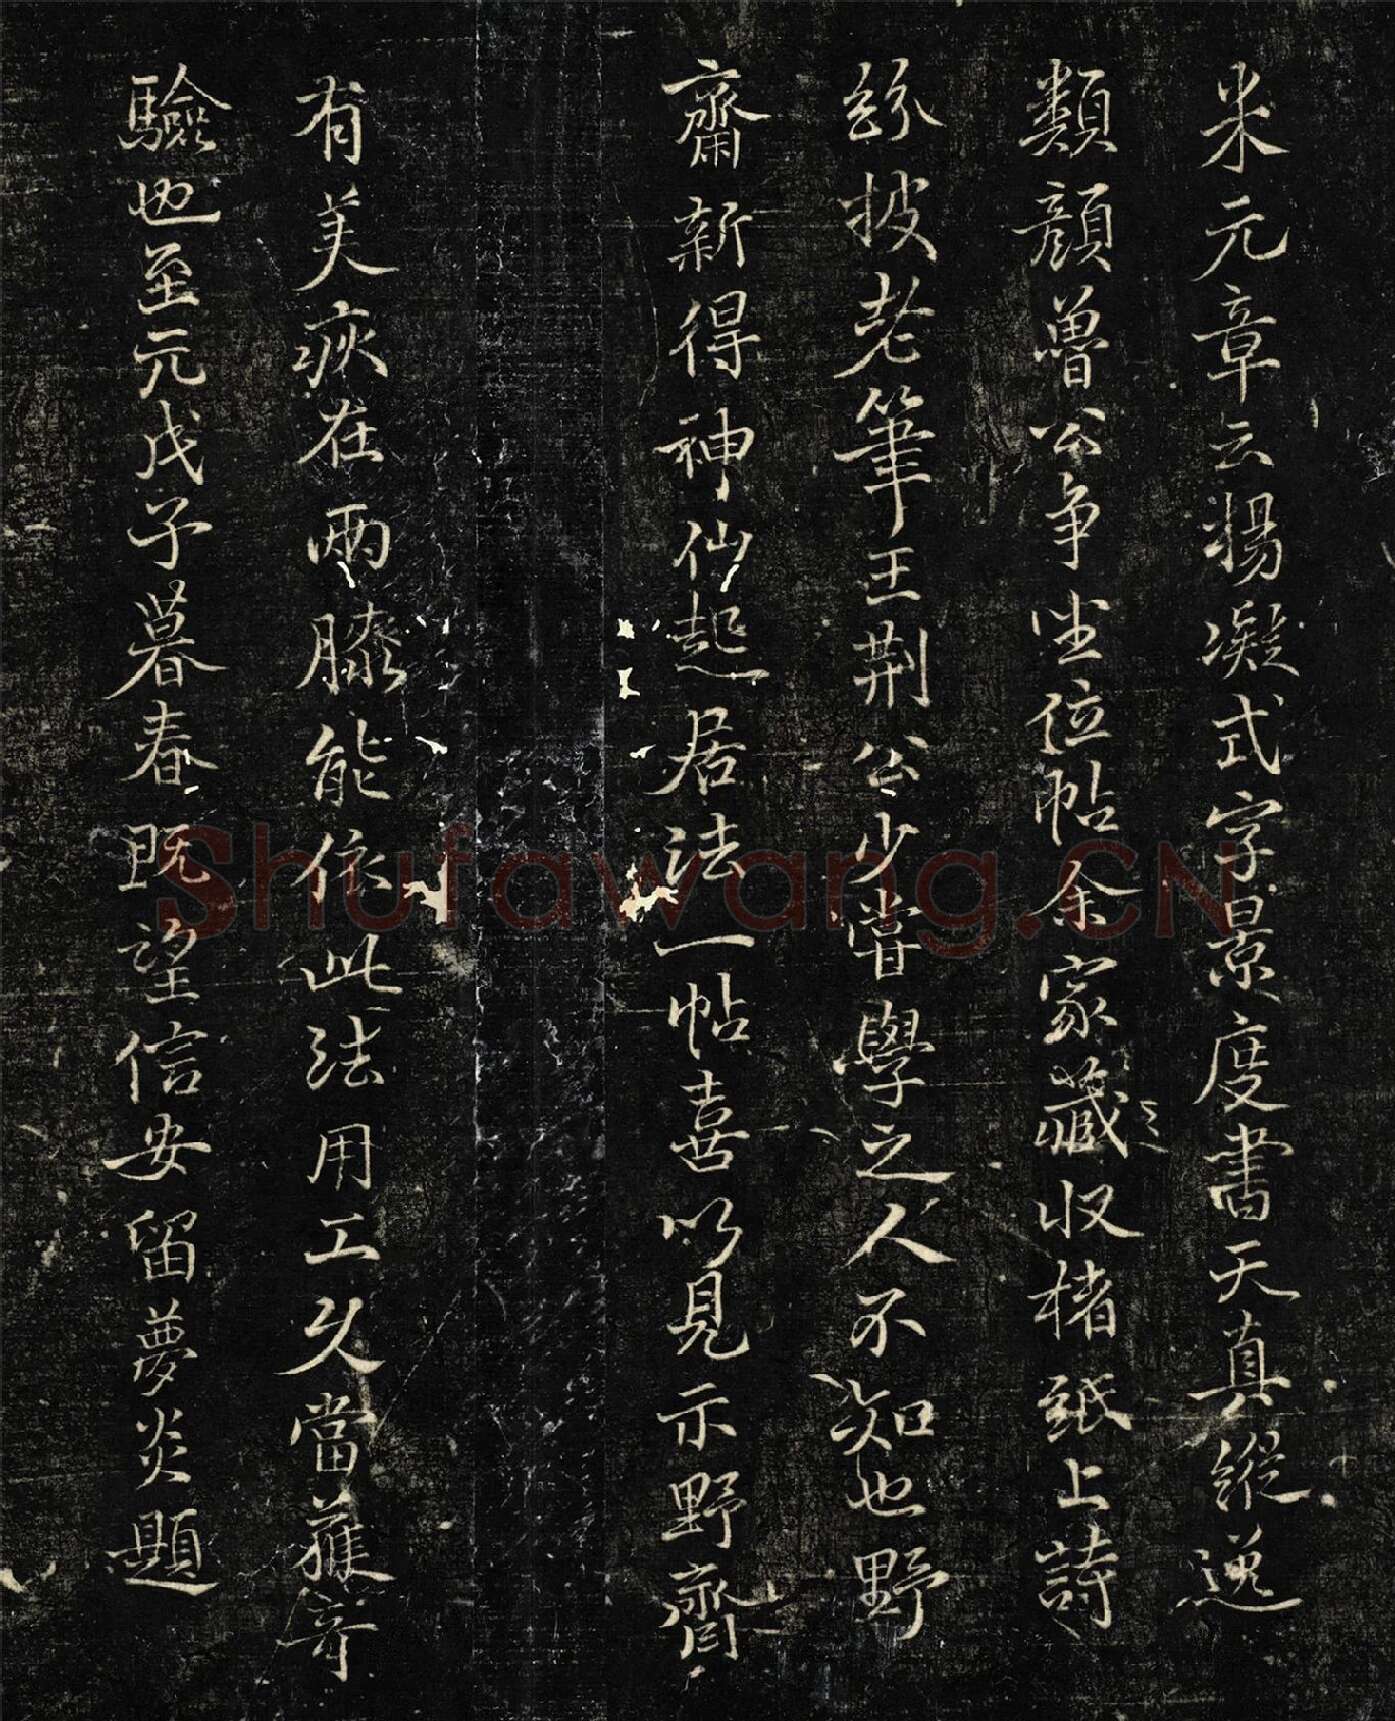 米元章云楊凝式字景度書天真縱逸
類顏魯公爭坐位帖余家藏収楮紙上詩
紛披老筆王荆公少嘗學之人不知也野
齋新得神仙起居法一帖喜以見示野齋
有美疢在兩膝能依此法用工久當獲奇
驗也至元戊子暮春既望信安留夢炎題
Shufawang.CN